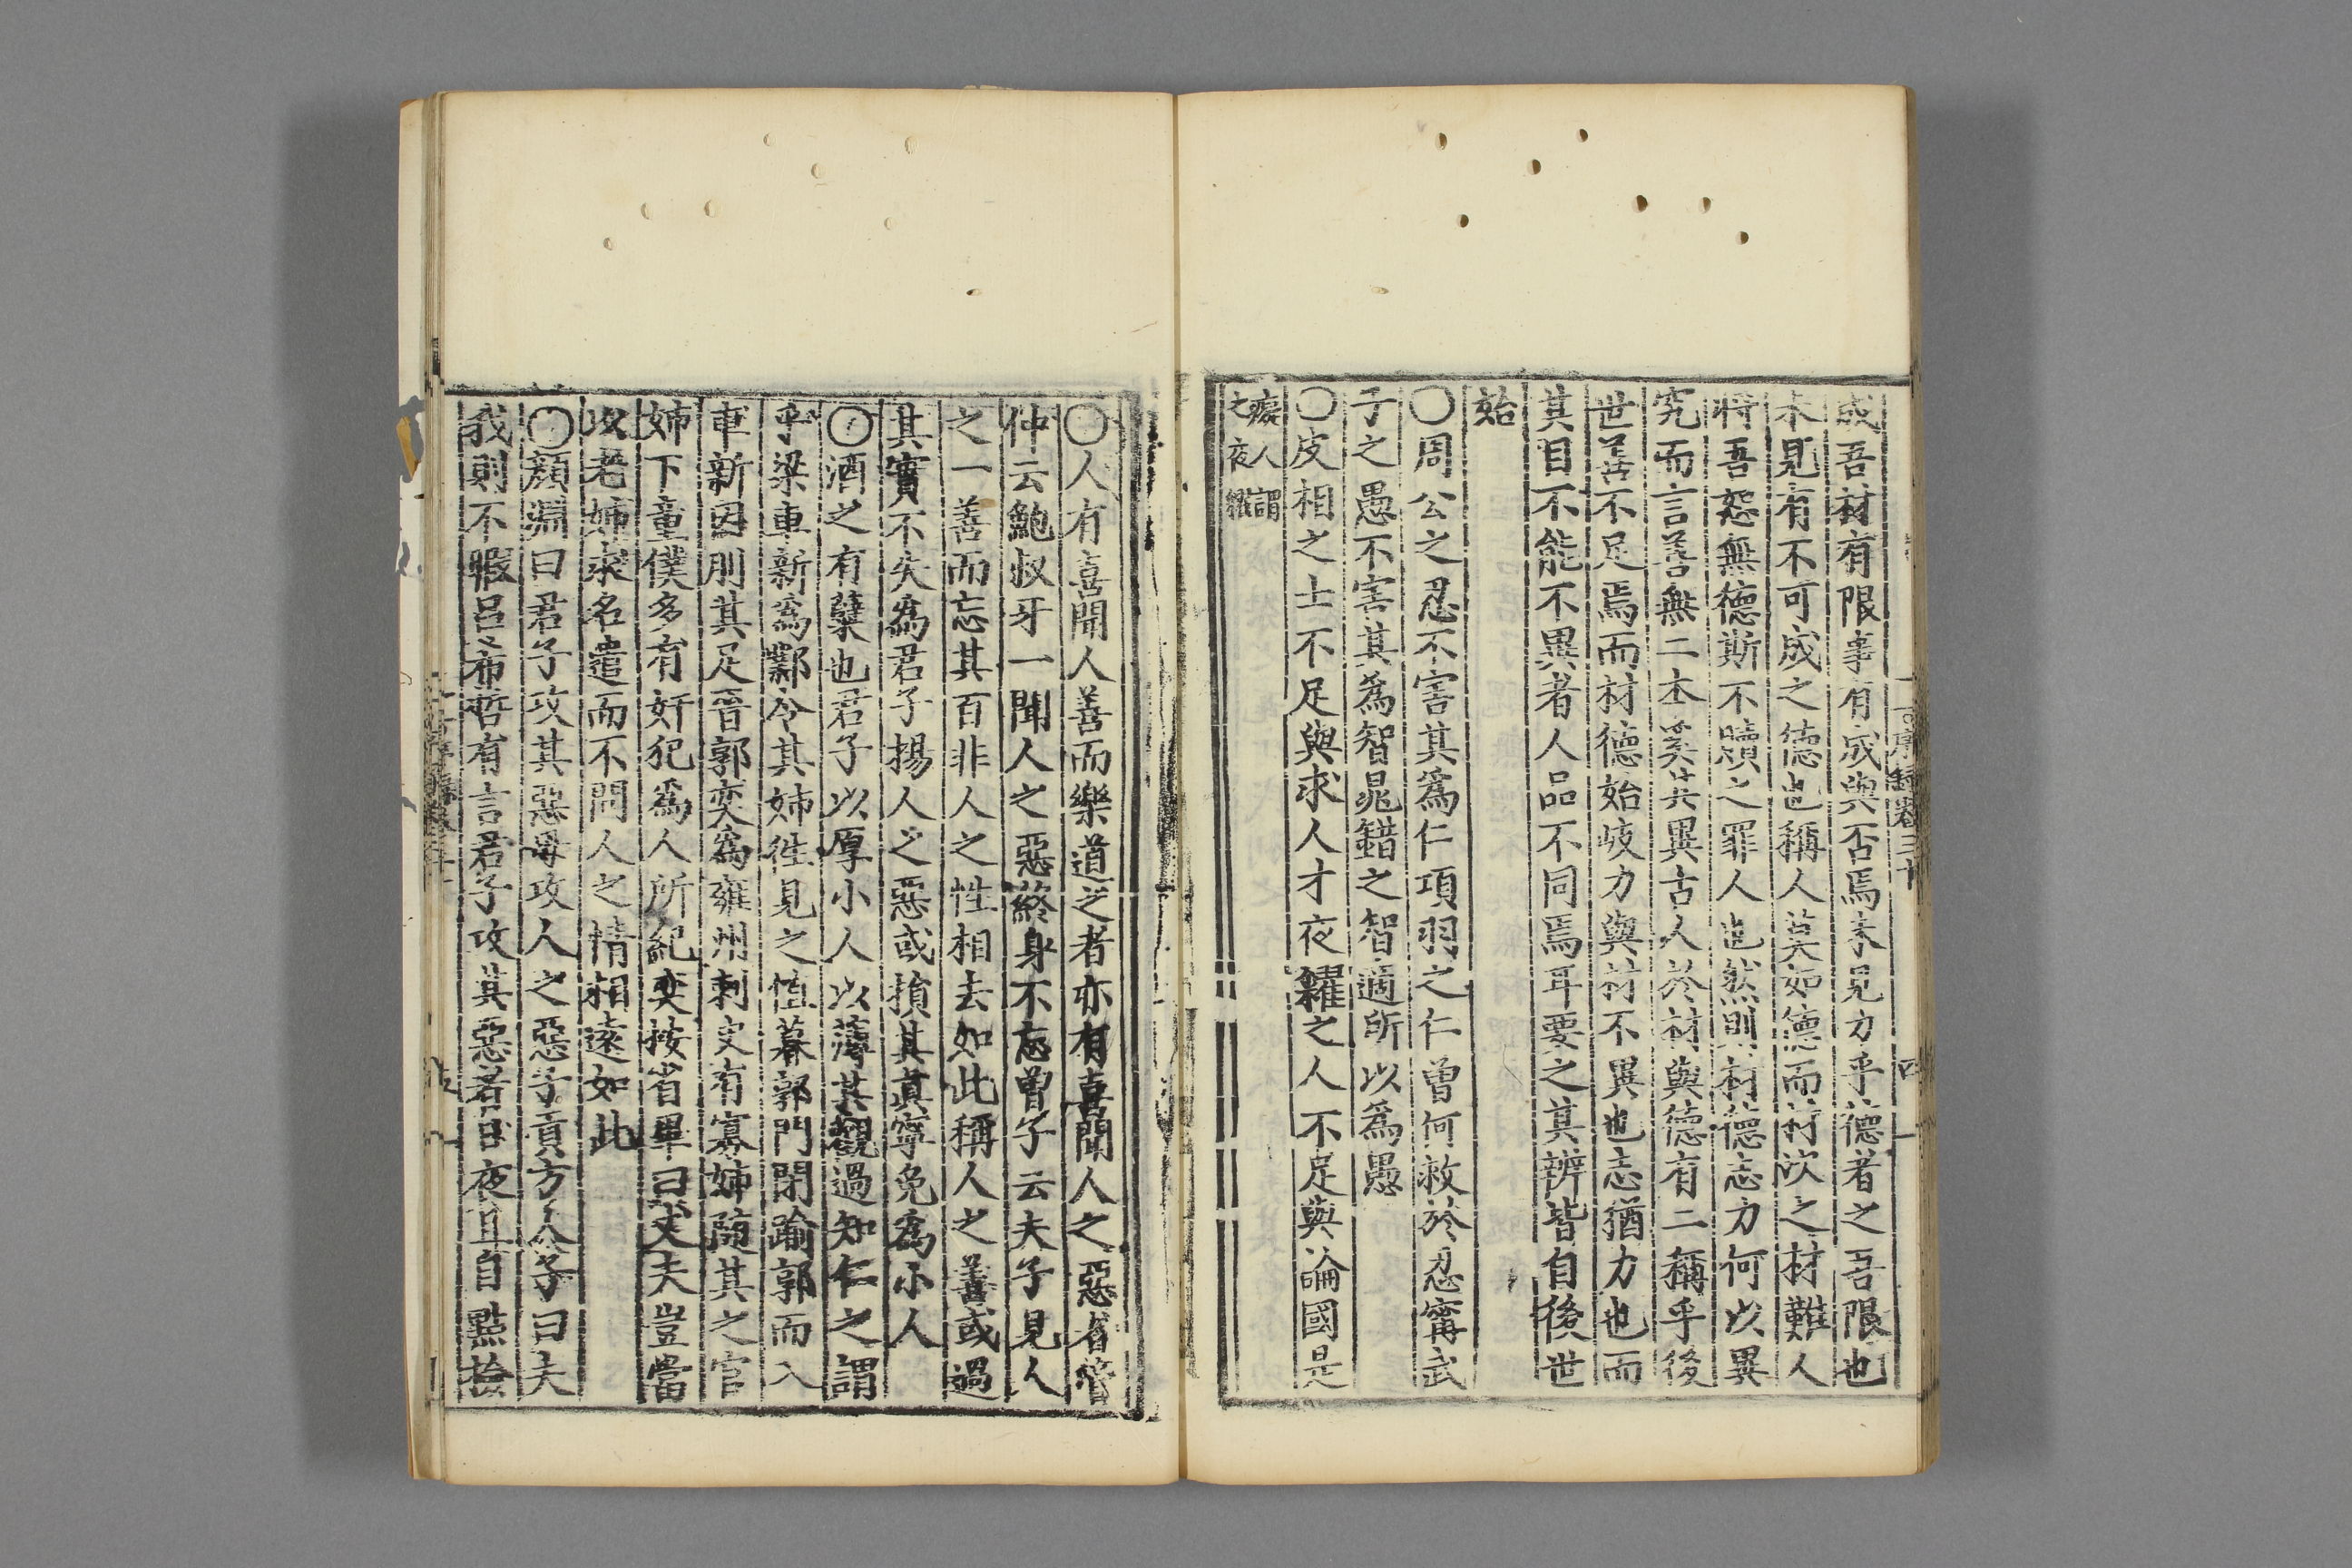 或吾材有限事有成與否焉未見力乎德者之吾限也
未見有不可成之德也稱人莫如德而材次之材難人
將吾恕無德斯不贖之罪人也然則材德志力何以異
究而言善無二本奚其異古人於材與德有二稱乎後
世善不足焉而材德始歧力與材不異也志猶力也而
其目不能不異者人品不同焉耳要之其辨皆自後世
始
〇周公之忍不害其為仁項羽之仁曾何救於忍甯武
子之愚不害其為智晁錯之智適所以為愚
〇皮相之士不足與求人才夜糴之人不足與論國是
癡人謂
之夜糴
〇人有喜聞人善而樂道之者亦有喜聞人之惡者管
仲云鮑叔牙一聞人之惡終身不忘曾子云夫子見人
之一善而忘其百非人之性相去如此稱人之善或過
其實不失為君子揚人之惡或損其真寧免為小人
〇酒之有糵也君子以厚小人以薄其觀過知仁之謂
乎梁車新為鄴令其姊往見之值暮郭門閉踰郭而入
車新因刖其足晉郭奕為雍州刺史有寡姊隨其之官
姊下童僕多有奸犯為人所糾奕按省畢曰丈夫豈當
以老姊求名遣而不問人之情相遠如此
〇顏淵曰君子攻其惡毋攻人之惡子貢方人子曰夫
我則不暇呂希哲有言君子攻其惡若日夜且自點撿